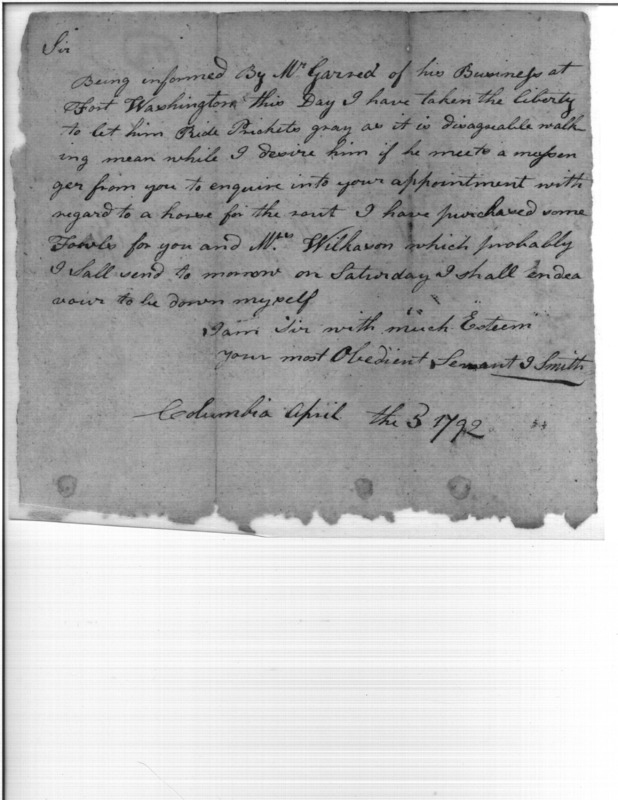 Sir
Being informed By Mr Garred of his Business at
Fort Washington this Day I have taken the liberty
to let him Ride Prickets gray as it is disagueable walk
ing mean while I desire him if he meets a messen
ger from you to enquire into your appointment with
regard to a horse for the rout I have purchased some
Fowls for you and Mrs. Wilkason which probably
I Sall send to morrow on Saturday I shall endea
vour to be down myself
I am Sir with much Esteem
your most Obedient Servant J Smith
Columbia April the 5 1792